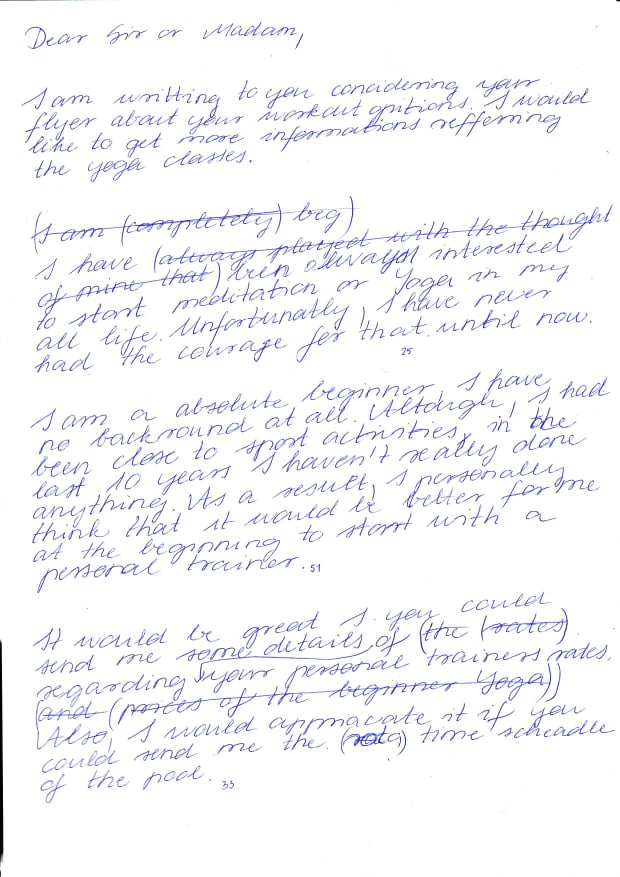 Dear Sir or Madam,
I am writting to you concidering your
flyer about your workout opritions. I would
like to get more informations refferring
the yoga classes.
(I am (completely) beg)
I have (always played with the thought
of mine that) been always interested
to start meditation or Yoga in my
all life. Unfortunally, I have never
had the courage for that until now.
25
I am a absolute beginner, I have
no background at all. Altough, I had
been close to sport activities, in the
last 10 years I haven't really done
anything. As a result, I personally
think that it would be better for me
at the beginning to start with a
personal trainer. 51
It would be great I you could
send me some details of (the (rates)
regarding your personal trainers rates.
(and (prices of the beginner Yoga))
Also, I would appriacate it if you
could send me the time scheadle
of the pool. 33